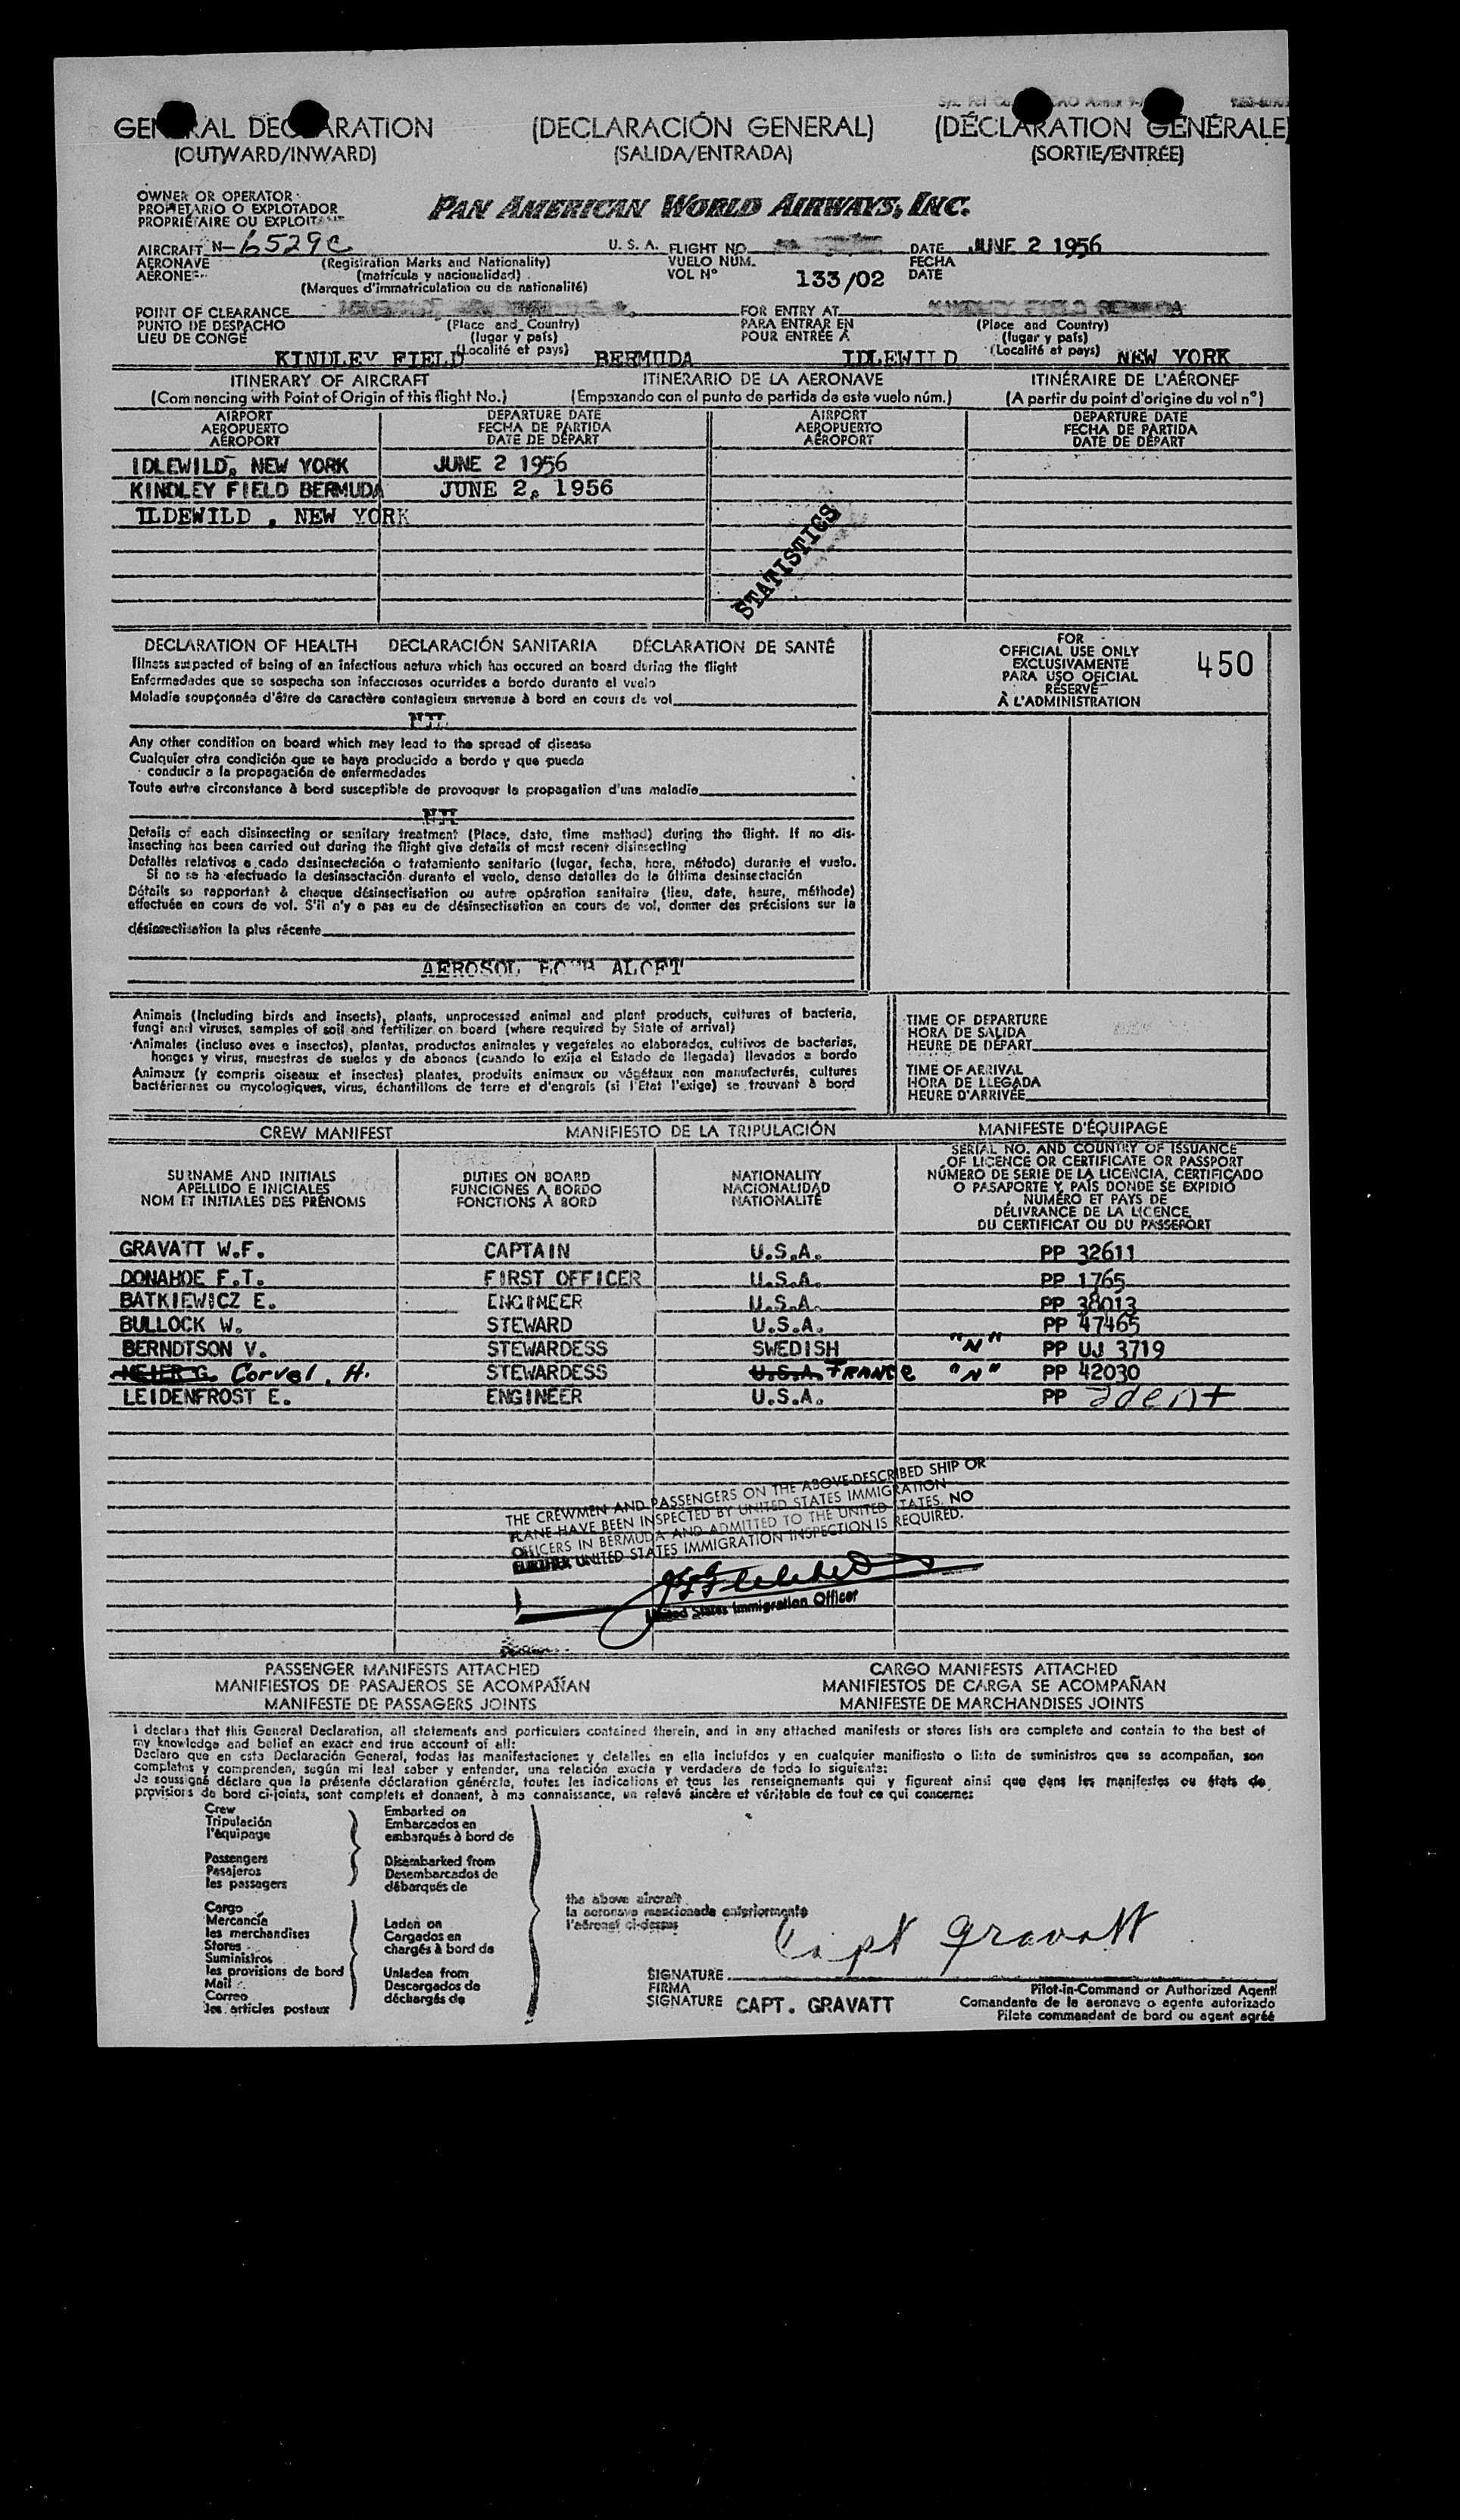 GENERAL DECLARATION (DECLARACIÓN GENERAL) (DÉCLARATION GÉNÉRALE)
(OUTWARD/INWARD) (SALIDA/ENTRADA) (SORTIE/ENTRÉE)
OWNER OR OPERATOR
PROPIETARIO O EXPLOTADOR
PROPRIÉTAIRE OU EXPLOIT
PAN AMERICAN WORLD AIRWAYS, INC.
AIRCRAFT N-6529C U. S. A. FLIGHT NO. DATE JUNE 2 1956
AERONAVE (Registration Marks and Nationality) VUELO NUM. FECHA
AÉRONEF (matrícula y nacionalidad) VOL N° 133/02 DATE
(Marques d'immatriculation ou de nationalité)
POINT OF CLEARANCE FOR ENTRY AT KINDLEY FIELD BERMUDA
PUNTO DE DESPACHO (Place and Country) PARA ENTRAR EN (Place and Country)
LIEU DE CONGÉ (lugar y país) POUR ENTRÉE À (lugar y país)
(Localité et pays) (Localité et pays)
KINDLEY FIELD BERMUDA IDLEWILD NEW YORK
ITINERARY OF AIRCRAFT ITINERARIO DE LA AERONAVE ITINÉRAIRE DE L'AÉRONEF
(Commencing with Point of Origin of this flight No.) (Empezando con el punto de partida de este vuelo núm.) (A partir du point d'origine du vol n°)
AIRPORT DEPARTURE DATE AIRPORT DEPARTURE DATE
AEROPUERTO FECHA DE PARTIDA AEROPUERTO FECHA DE PARTIDA
AÉROPORT DATE DE DÉPART AÉROPORT DATE DE DÉPART
IDLEWILD, NEW YORK JUNE 2 1956
KINDLEY FIELD BERMUDA JUNE 2, 1956
ILDEWILD , NEW YORK
STATISTICS
DECLARATION OF HEALTH DECLARACIÓN SANITARIA DÉCLARATION DE SANTÉ
Illness suspected of being of an infectious nature which has occured on board during the flight
Enfermedades que se sospecha son infecciosas ocurridas a bordo durante el vuelo
Maladie soupçonnée d'être de caractère contagieux survenue à bord en cours de vol
NIL
Any other condition on board which may lead to the spread of disease
Cualquier otra condición que se haya producido a bordo y que pueda
conducir a la propagación de enfermedades
Toute autre circonstance à bord susceptible de provoquer la propagation d'une maladie
NIL
Details of each disinsecting or sanitary treatment (Place, date, time method) during the flight. If no dis-
insecting has been carried out during the flight give details of most recent disinsecting
Detalles relativos a cada desinsectación o tratamiento sanitario (lugar, fecha, hora, método) durante el vuelo.
Si no se ha efectuado la desinsectación durante el vuelo, dense detalles de la última desinsectación
Détails se rapportant à chaque désinsectisation ou autre opération sanitaire (lieu, date, heure, méthode)
effectuée en cours de vol. S'il n'y a pas eu de désinsectisation en cours de vol, donner des précisions sur la
désinsectisation la plus récente
AEROSOL BOMB ALOFT
FOR
OFFICIAL USE ONLY
EXCLUSIVAMENTE
PARA USO OFICIAL
RÉSERVÉ
À L'ADMINISTRATION
450
Animals (Including birds and insects), plants, unprocessed animal and plant products, cultures of bacteria,
fungi and viruses, samples of soil and fertilizer on board (where required by State of arrival)
Animales (incluso aves e insectos), plantas, productos animales y vegetales no elaborados, cultivos de bacterias,
hongos y virus, muestras de suelos y de abonos (cuando lo exija el Estado de llegada) llevados a bordo
Animaux (y compris oiseaux et insectes) plantes, produits animaux ou végétaux non manufacturés, cultures
bactériennes ou mycologiques, virus, échantillons de terre et d'engrais (si l'État l'exige) se trouvant à bord
TIME OF DEPARTURE
HORA DE SALIDA
HEURE DE DÉPART
TIME OF ARRIVAL
HORA DE LLEGADA
HEURE D'ARRIVÉE
CREW MANIFEST MANIFIESTO DE LA TRIPULACIÓN MANIFESTE D'ÉQUIPAGE
SURNAME AND INITIALS
APELLIDO E INICIALES
NOM ET INITIALES DES PRÉNOMS
DUTIES ON BOARD
FUNCIONES A BORDO
FONCTIONS À BORD
NATIONALITY
NACIONALIDAD
NATIONALITÉ
SERIAL NO. AND COUNTRY OF ISSUANCE
OF LICENCE OR CERTIFICATE OR PASSPORT
NÚMERO DE SERIE DE LA LICENCIA, CERTIFICADO
O PASAPORTE Y PAÍS DONDE SE EXPIDIÓ
NUMÉRO ET PAYS DE
DÉLIVRANCE DE LA LICENCE,
DU CERTIFICAT OU DU PASSEPORT
GRAVATT W.F. CAPTAIN U.S.A. PP 32611
DONAHOE F.T. FIRST OFFICER U.S.A. PP 1765
BATKIEWICZ E. ENGINEER U.S.A. PP 38013
BULLOCK W. STEWARD U.S.A. PP 47465
BERNDTSON V. STEWARDESS SWEDISH "N" PP UJ 3719
MEIER G. Corvel, H. STEWARDESS U.S.A. FRANCE "N" PP 42030
LEIDENFROST E. ENGINEER U.S.A. PP Ident
THE CREWMEN AND PASSENGERS ON THE ABOVE-DESCRIBED SHIP OR
PLANE HAVE BEEN INSPECTED BY UNITED STATES IMMIGRATION
OFFICERS IN BERMUDA AND ADMITTED TO THE UNITED STATES. NO
FURTHER UNITED STATES IMMIGRATION INSPECTION IS REQUIRED.
United States Immigration Officer
PASSENGER MANIFESTS ATTACHED CARGO MANIFESTS ATTACHED
MANIFIESTOS DE PASAJEROS SE ACOMPAÑAN MANIFIESTOS DE CARGA SE ACOMPAÑAN
MANIFESTE DE PASSAGERS JOINTS MANIFESTE DE MARCHANDISES JOINTS
I declare that this General Declaration, all statements and particulars contained therein, and in any attached manifests or stores lists are complete and contain to the best of
my knowledge and belief an exact and true account of all:
Declaro que en esta Declaración General, todas las manifestaciones y detalles en ella incluídos y en cualquier manifiesto o lista de suministros que se acompañan, son
completos y comprenden, según mi leal saber y entender, una relación exacta y verdadera de todo lo siguiente:
Je soussigné déclare que la présente déclaration générale, toutes les indications et tous les renseignements qui y figurent ainsi que dans les manifestes ou états de
provisions de bord ci-joints, sont complets et donnent, à ma connaissance, un relevé sincère et véritable de tout ce qui concerne:
Crew
Tripulación
l'équipage
Passengers
Pasajeros
les passagers
Embarked on
Embarcados en
embarqués à bord de
Disembarked from
Desembarcados de
débarqués de
Cargo
Mercancía
les merchandises
Stores
Suministros
les provisions de bord
Mail
Correo
les articles postaux
Laden on
Cargados en
chargés à bord de
Unladen from
Descargados de
déchargés de
the above aircraft
la aeronave mencionada anteriormente
l'aéronef ci-dessus
Capt Gravatt
SIGNATURE
FIRMA
SIGNATURE CAPT. GRAVATT
Pilot-in-Command or Authorized Agent
Comandante de la aeronave o agente autorizado
Pilote commandant de bord ou agent agréé